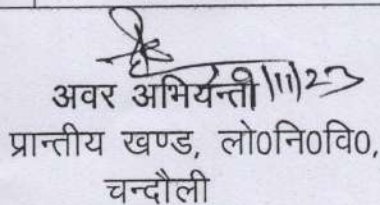 अवर अभियन्ता
प्रान्तीय खण्ड, लो0नि0वि0,
चन्दौली